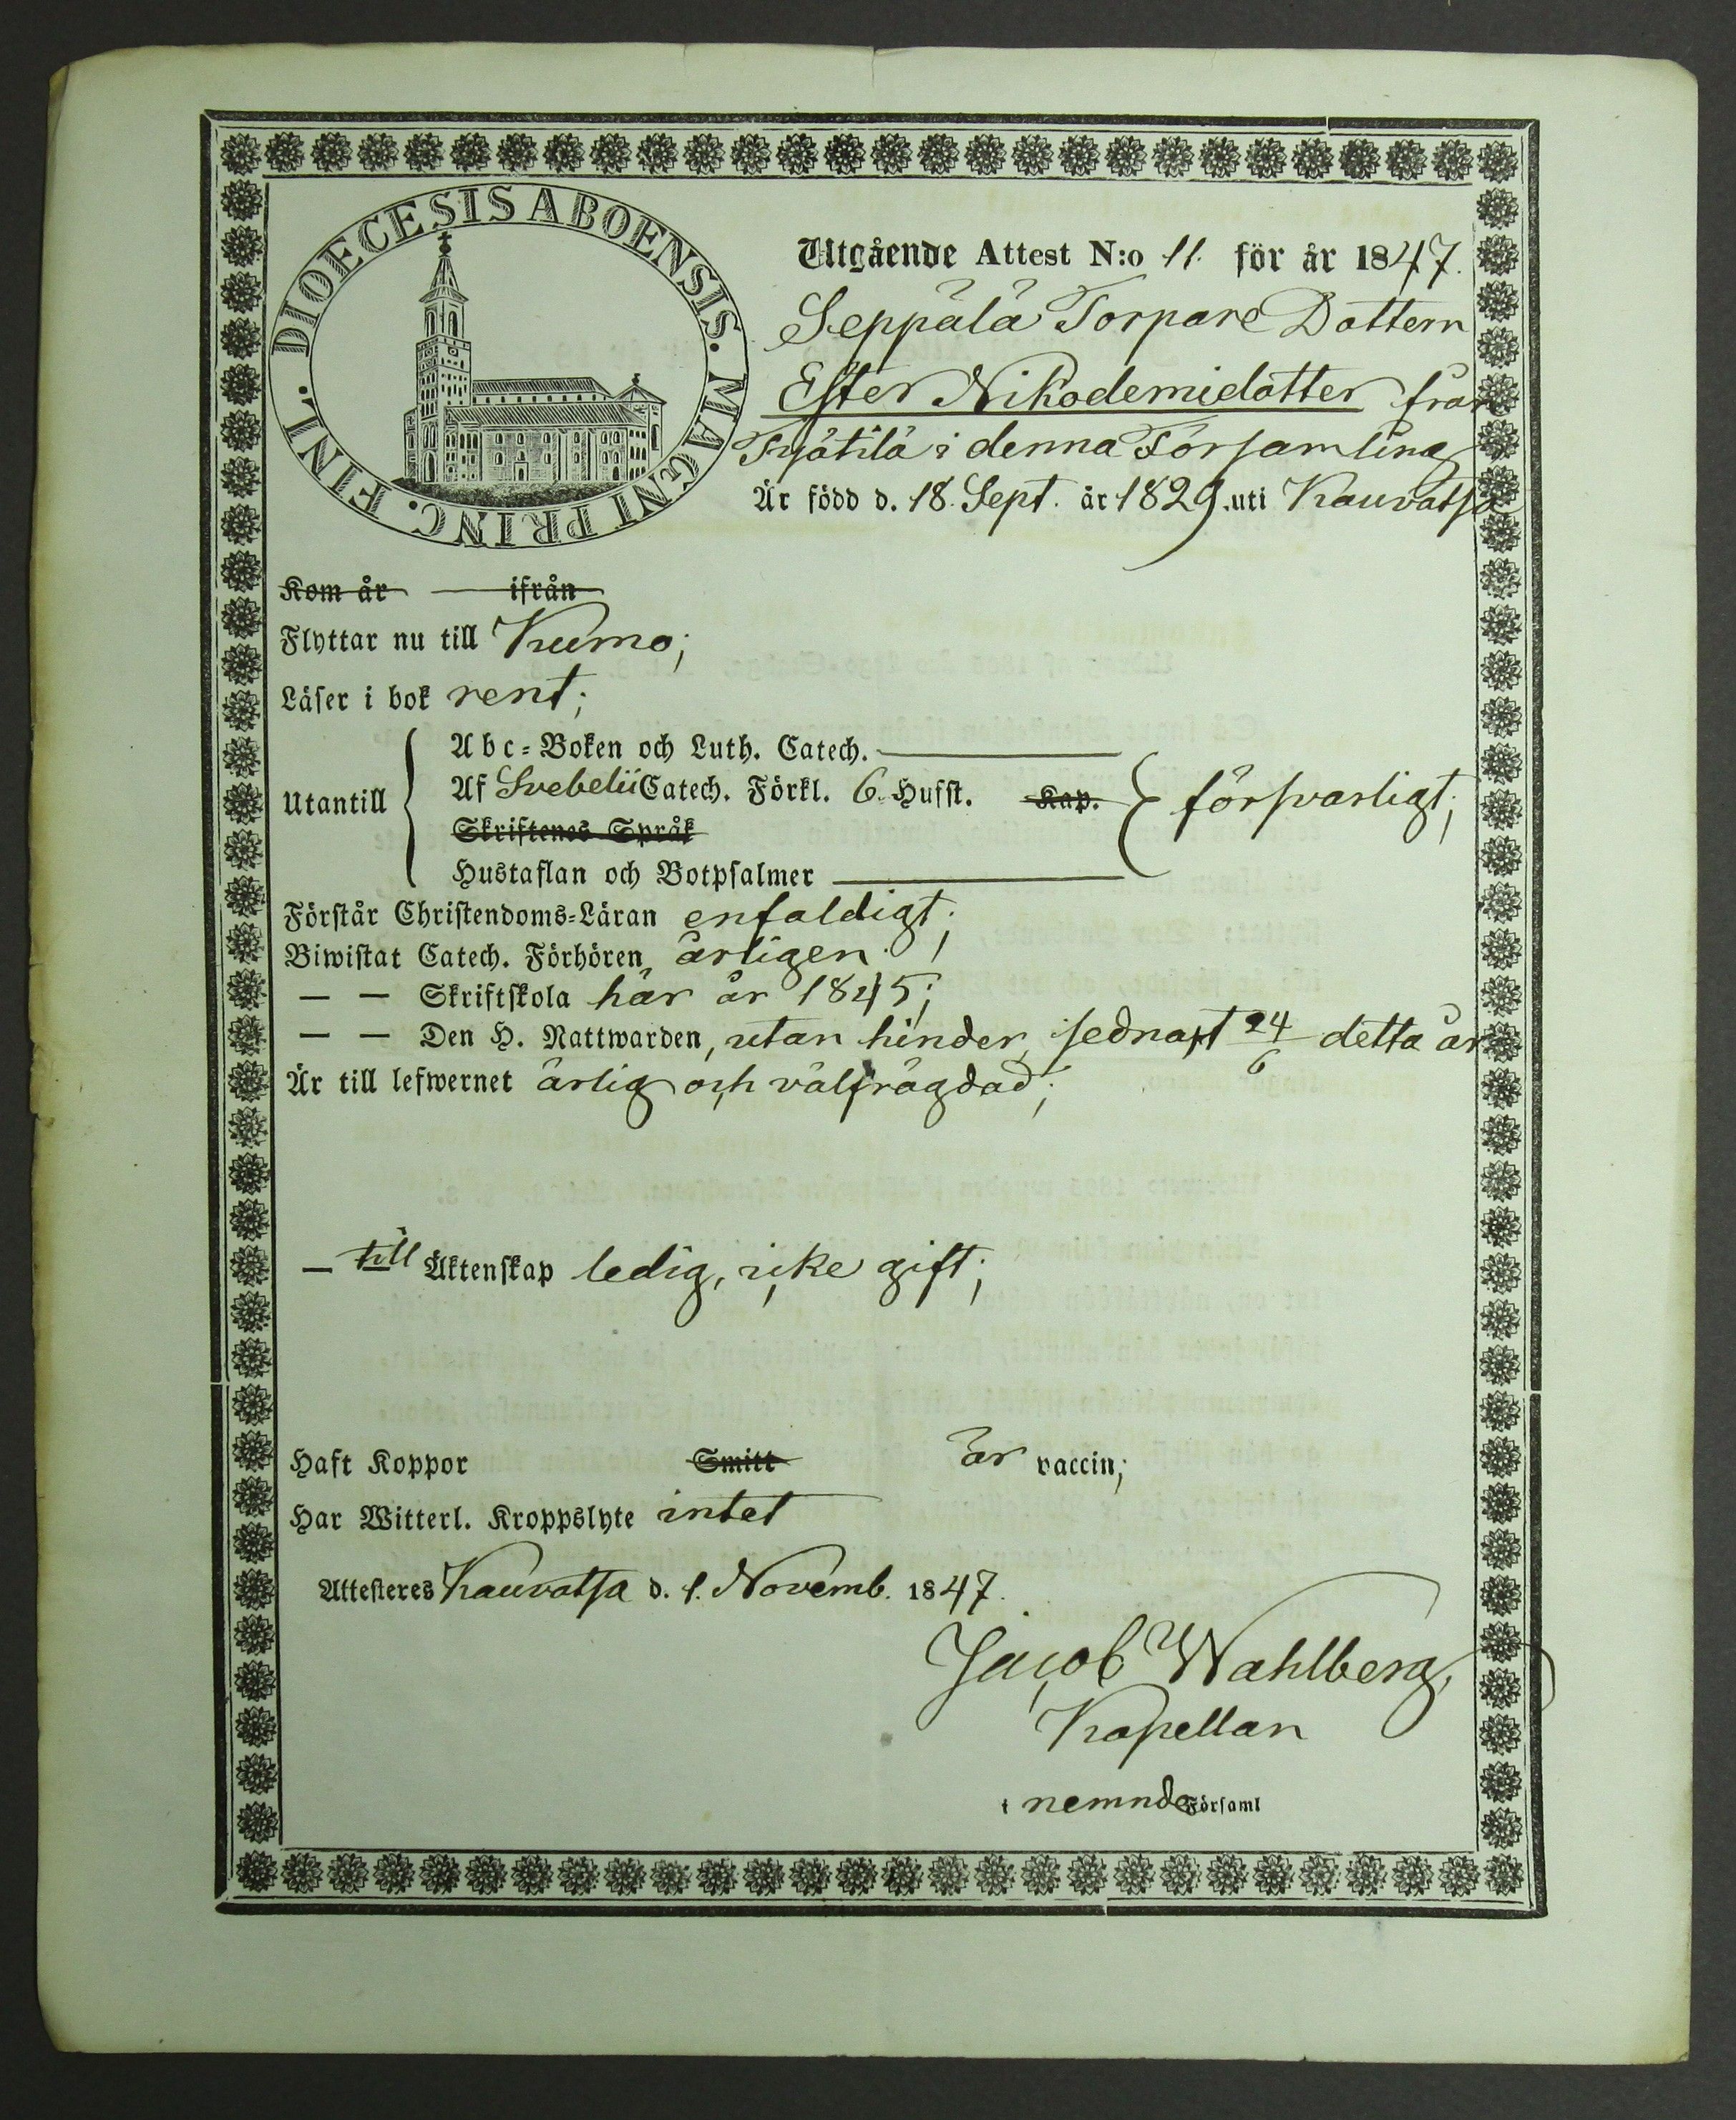 DIOECESIS ABOENSIS. MAGNI PRINC. FINL.
Utgående Attest N:o 11. för år 1847.
Seppälä Torpare Dottern
Ester Nikodemidotter från
Yttilä i denna Församling
Är född d. 18. Sept. år 1829. uti Kauvatsa
Kom år ifrån
Flyttar nu till Kumo;
Läser i bok rent;
Abc-Boken och Luth. Catech.
Utantill
Af Svebelii Catech. Förkl. 6. Hufst. Kap. försvarligt;
Skriftenes Språk
Hustaflan och Botpsalmer
Förstår Christendoms-Läran enfaldigt;
Biwistat Catech. Förhören, årligen;
— — Skriftskola här år 1845;
— — Den H. Nattwarden, utan hinder, sednast 24/6 detta år
Är till lefwernet ärlig och välfrägdad;
— till Äktenskap ledig, icke gift;
Haft Koppor Smitt är vaccin;
Har Witterl. Kroppslyte intet
Attesteres Kauvatsa d. 1. Novemb. 1847.
Jacob Wahlberg,
Kapellan
i nemnde Församl